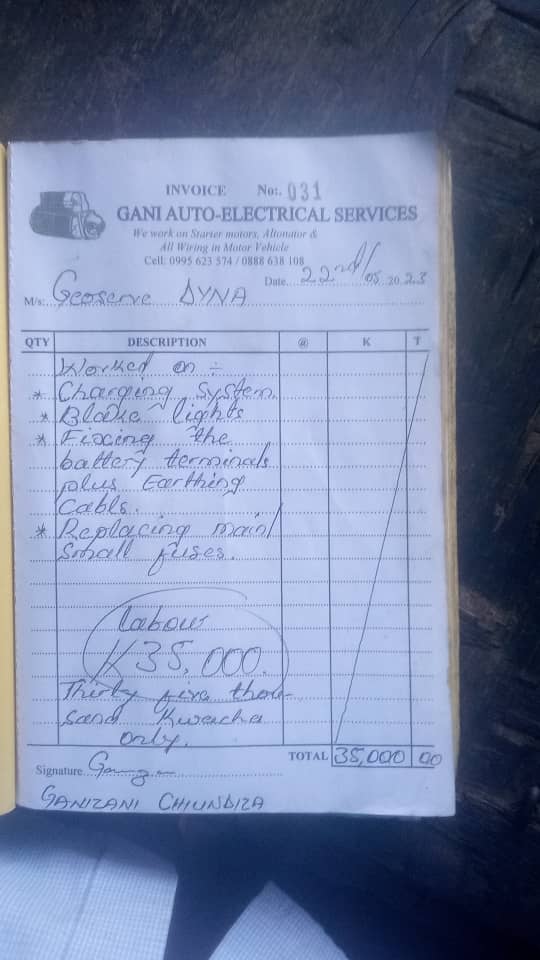 INVOICE No:. 031
GANI AUTO-ELECTRICAL SERVICES
We work on Starter motors, Altonator &
All Wiring in Motor Vehicle
Cell: 0995 623 574 / 0888 638 108
Date 22nd/05 2023
M/s: Geoserve DYNA
QTY DESCRIPTION @ K T
Worked on :-
* Charging System.
* Blake lights
* Fixing the
battery terminals
plus Earthing
Cable.
* Replacing main/
Small fuses.
labour
K35,000.
Thirty five thou-
sand Kwacha
only.
TOTAL 35,000 00
Signature
GANIZANI CHIUNDIZA